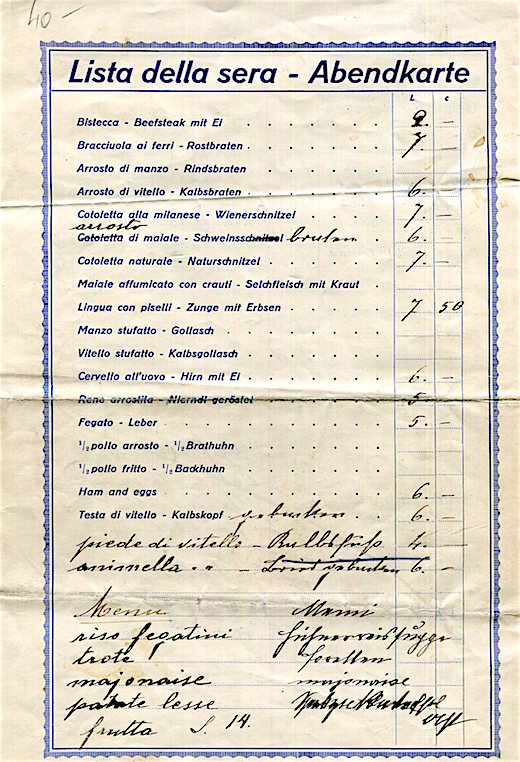 40 -
Lista della sera - Abendkarte
L c
Bistecca - Beefsteak mit Ei 9. -
Bracciuola ai ferri - Rostbraten 7. -
Arrosto di manzo - Rindsbraten
Arrosto di vitello - Kalbsbraten 6. -
Cotoletta alla milanese - Wienerschnitzel 7. -
arrosto
Cotolet di maiale - Schweinsschnitzel braten 6. -
Cotoletta naturale - Naturschnitzel 7. -
Maiale affumicato con crauti - Selchfleisch mit Kraut
Lingua con piselli - Zunge mit Erbsen 7 50
Manzo stufatto - Gollasch
Vitello stufatto - Kalbsgollasch
Cervello all'uovo - Hirn mit Ei 6. -
Rene arrostita - Nierndl geröstet 5
Fegato - Leber 5. -
1/2 pollo arrosto - 1/2 Brathuhn
1/2 pollo fritto - 1/2 Backhuhn
Ham and eggs 6. -
Testa di vitello - Kalbskopf gebacken 6. -
piede di vitello - Kalbsfuß 4. -
animella " " - gebacken 6. -
Menu Menü
riso fegatini
trote Forellen
majonaise majonaise
patate lesse
frutta L. 14. Obst